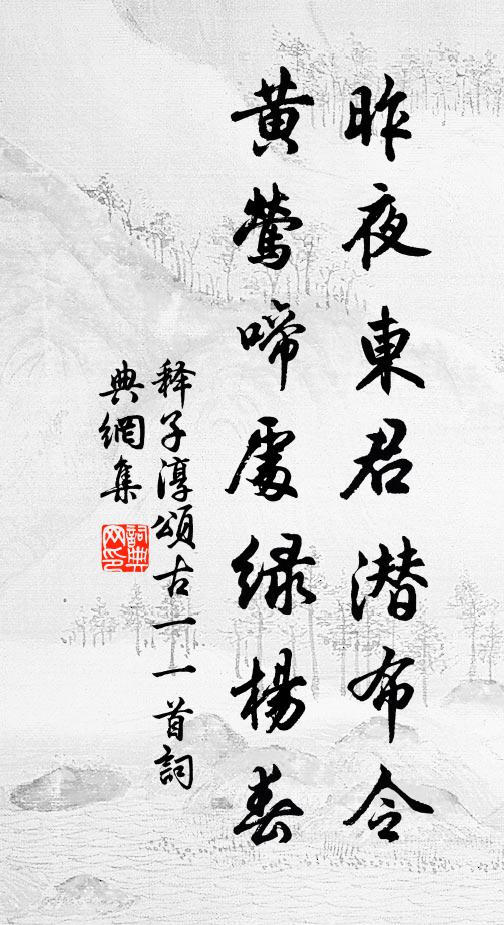 昨夜東君潜布令
黄鶯啼處绿楊春
释子淳頌古一一首詞
典網集
詞典网印